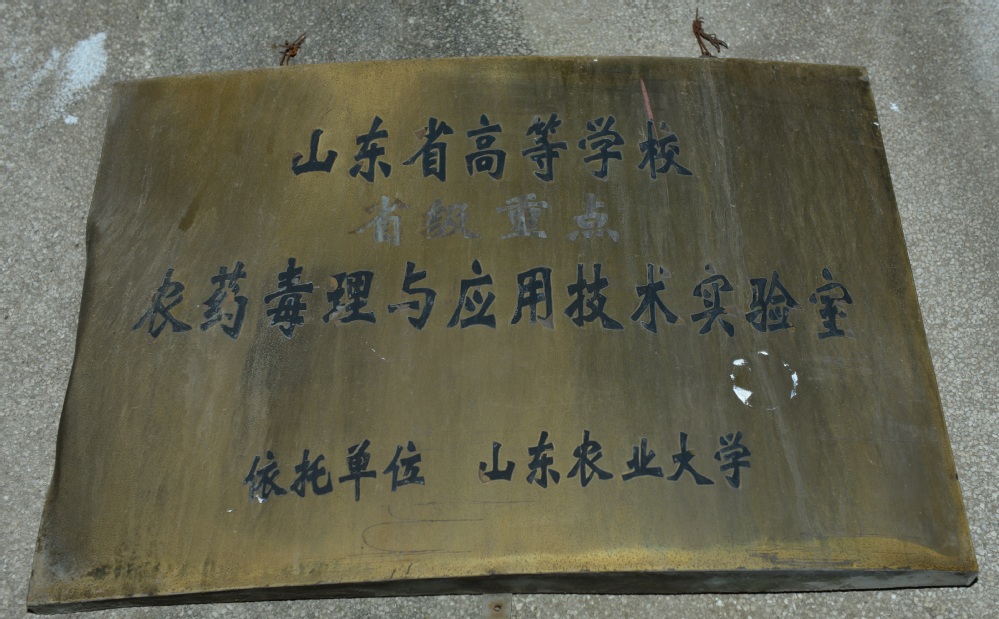 山东省高等学校
省级重点
农药毒理与应用技术实验室
依托单位 山东农业大学